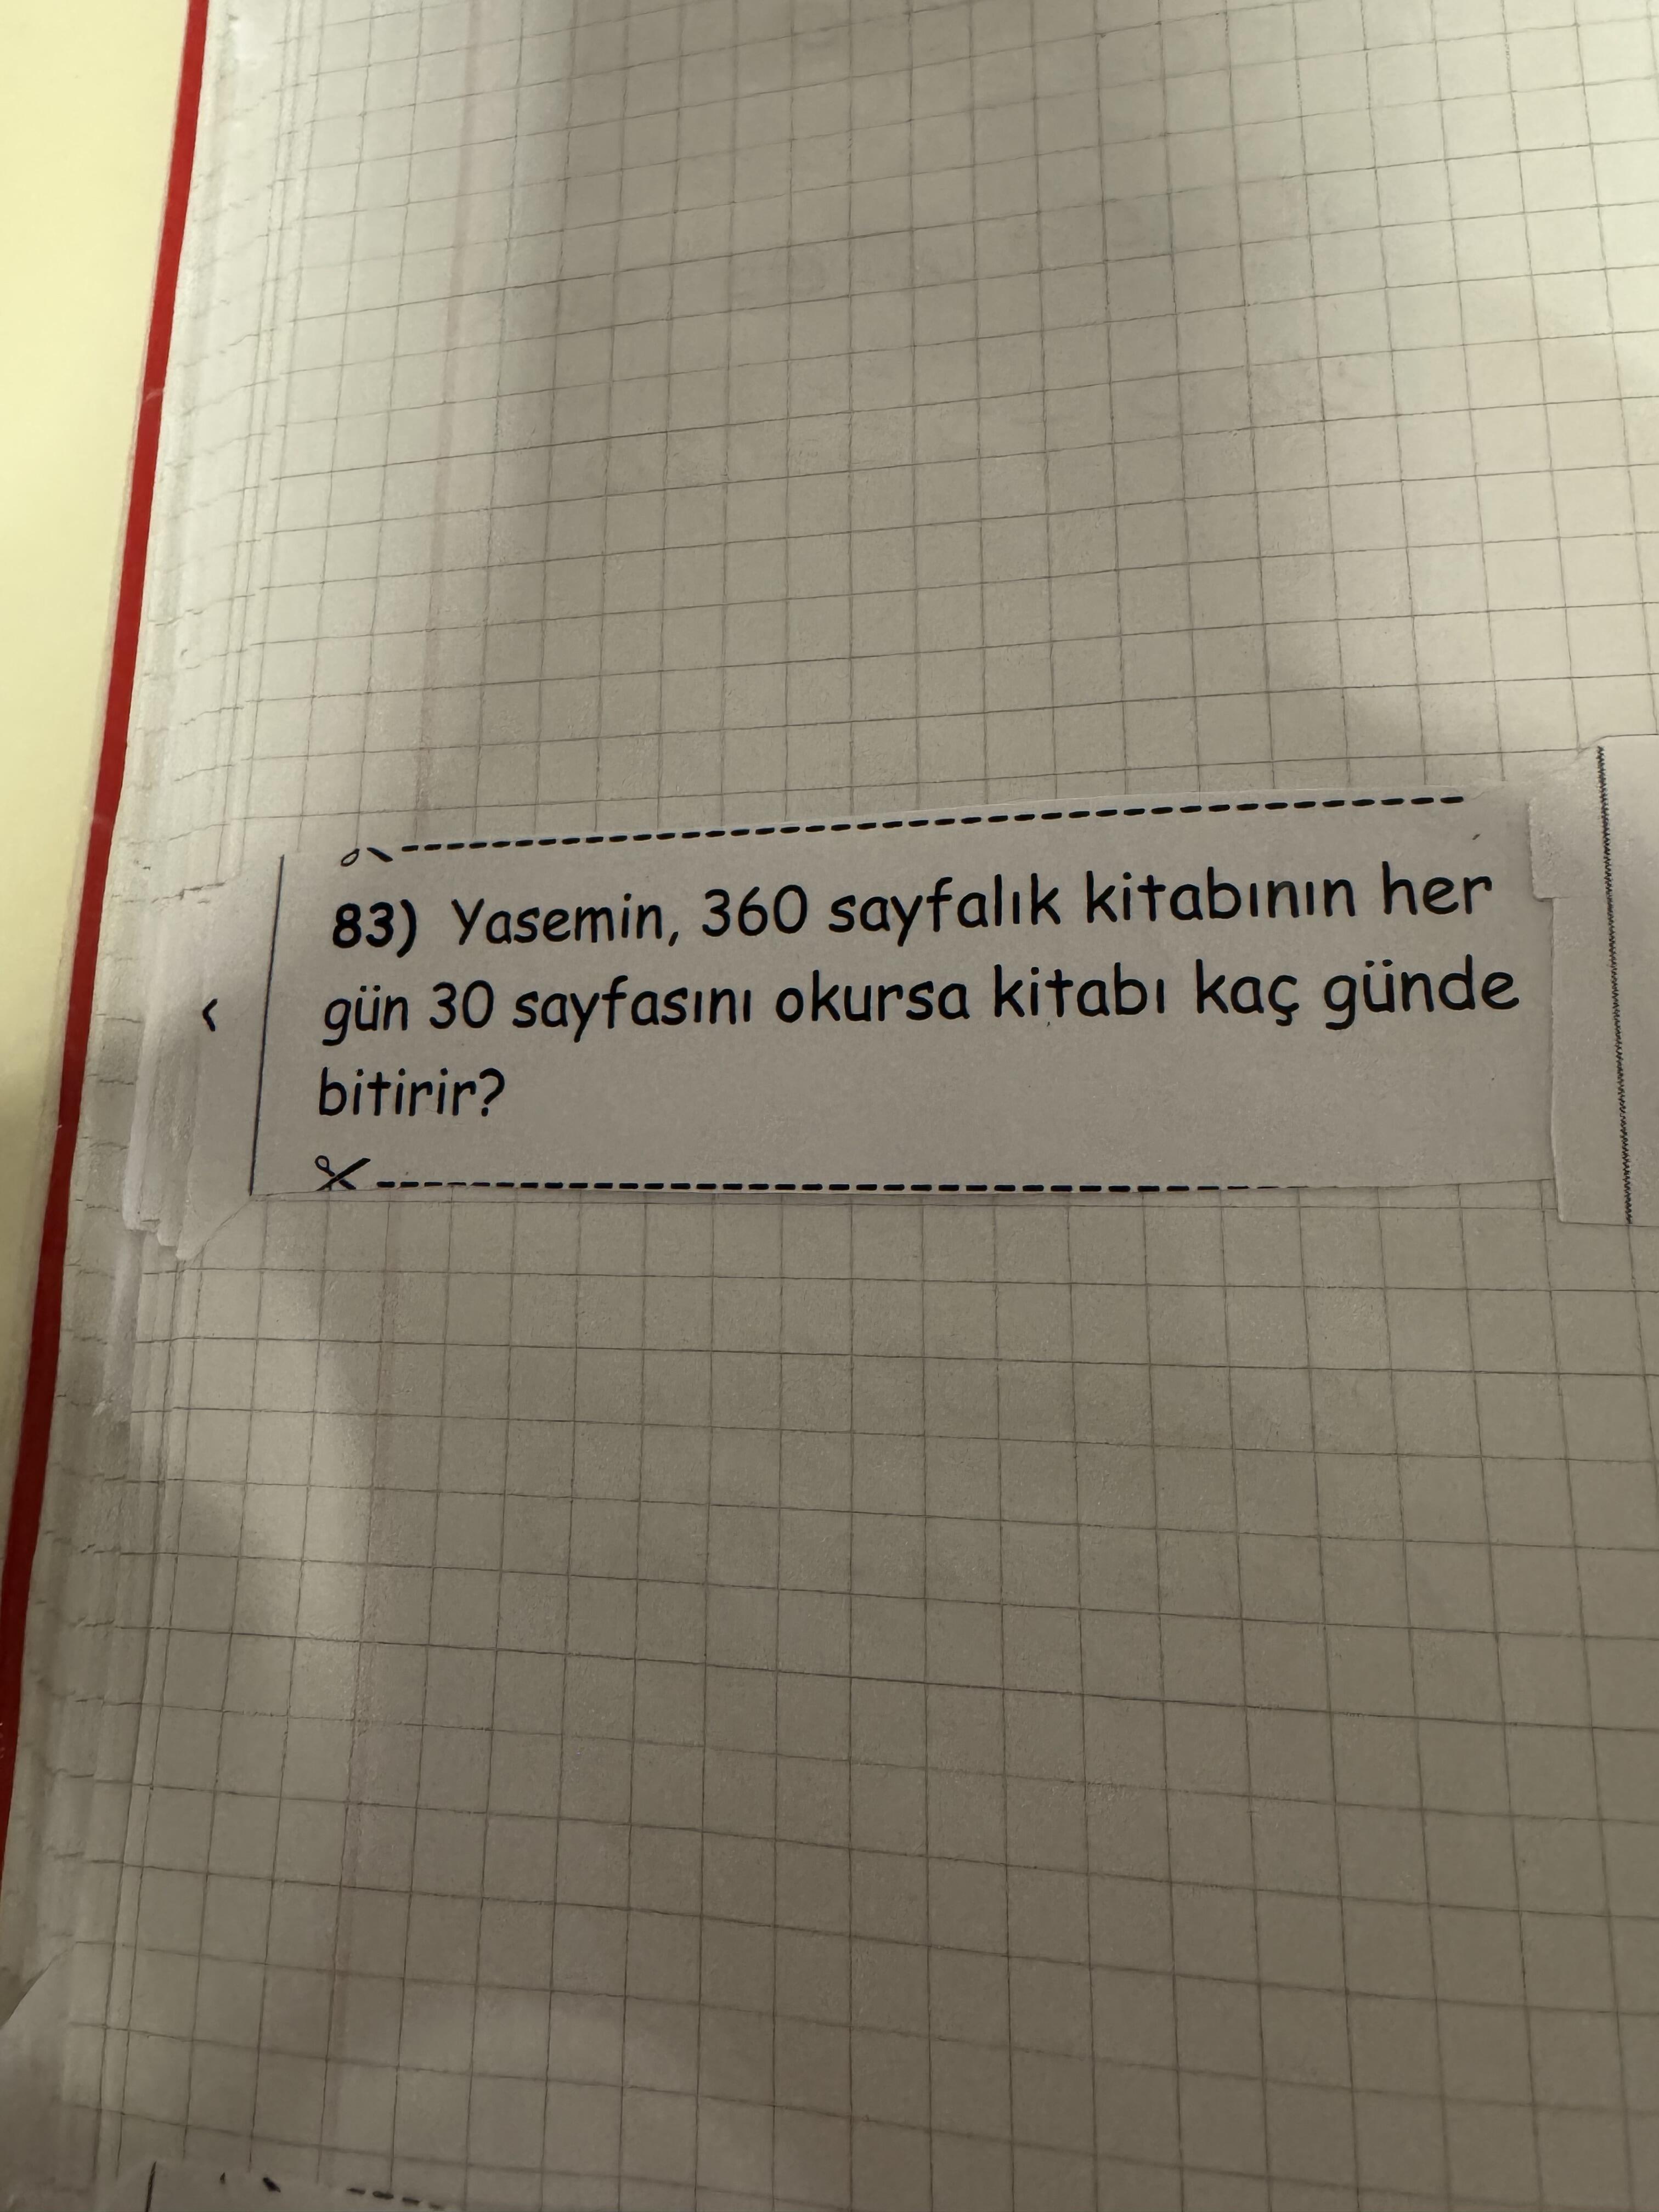 83) Yasemin, 360 sayfalık kitabının her
gün 30 sayfasını okursa kitabı kaç günde
bitirir?